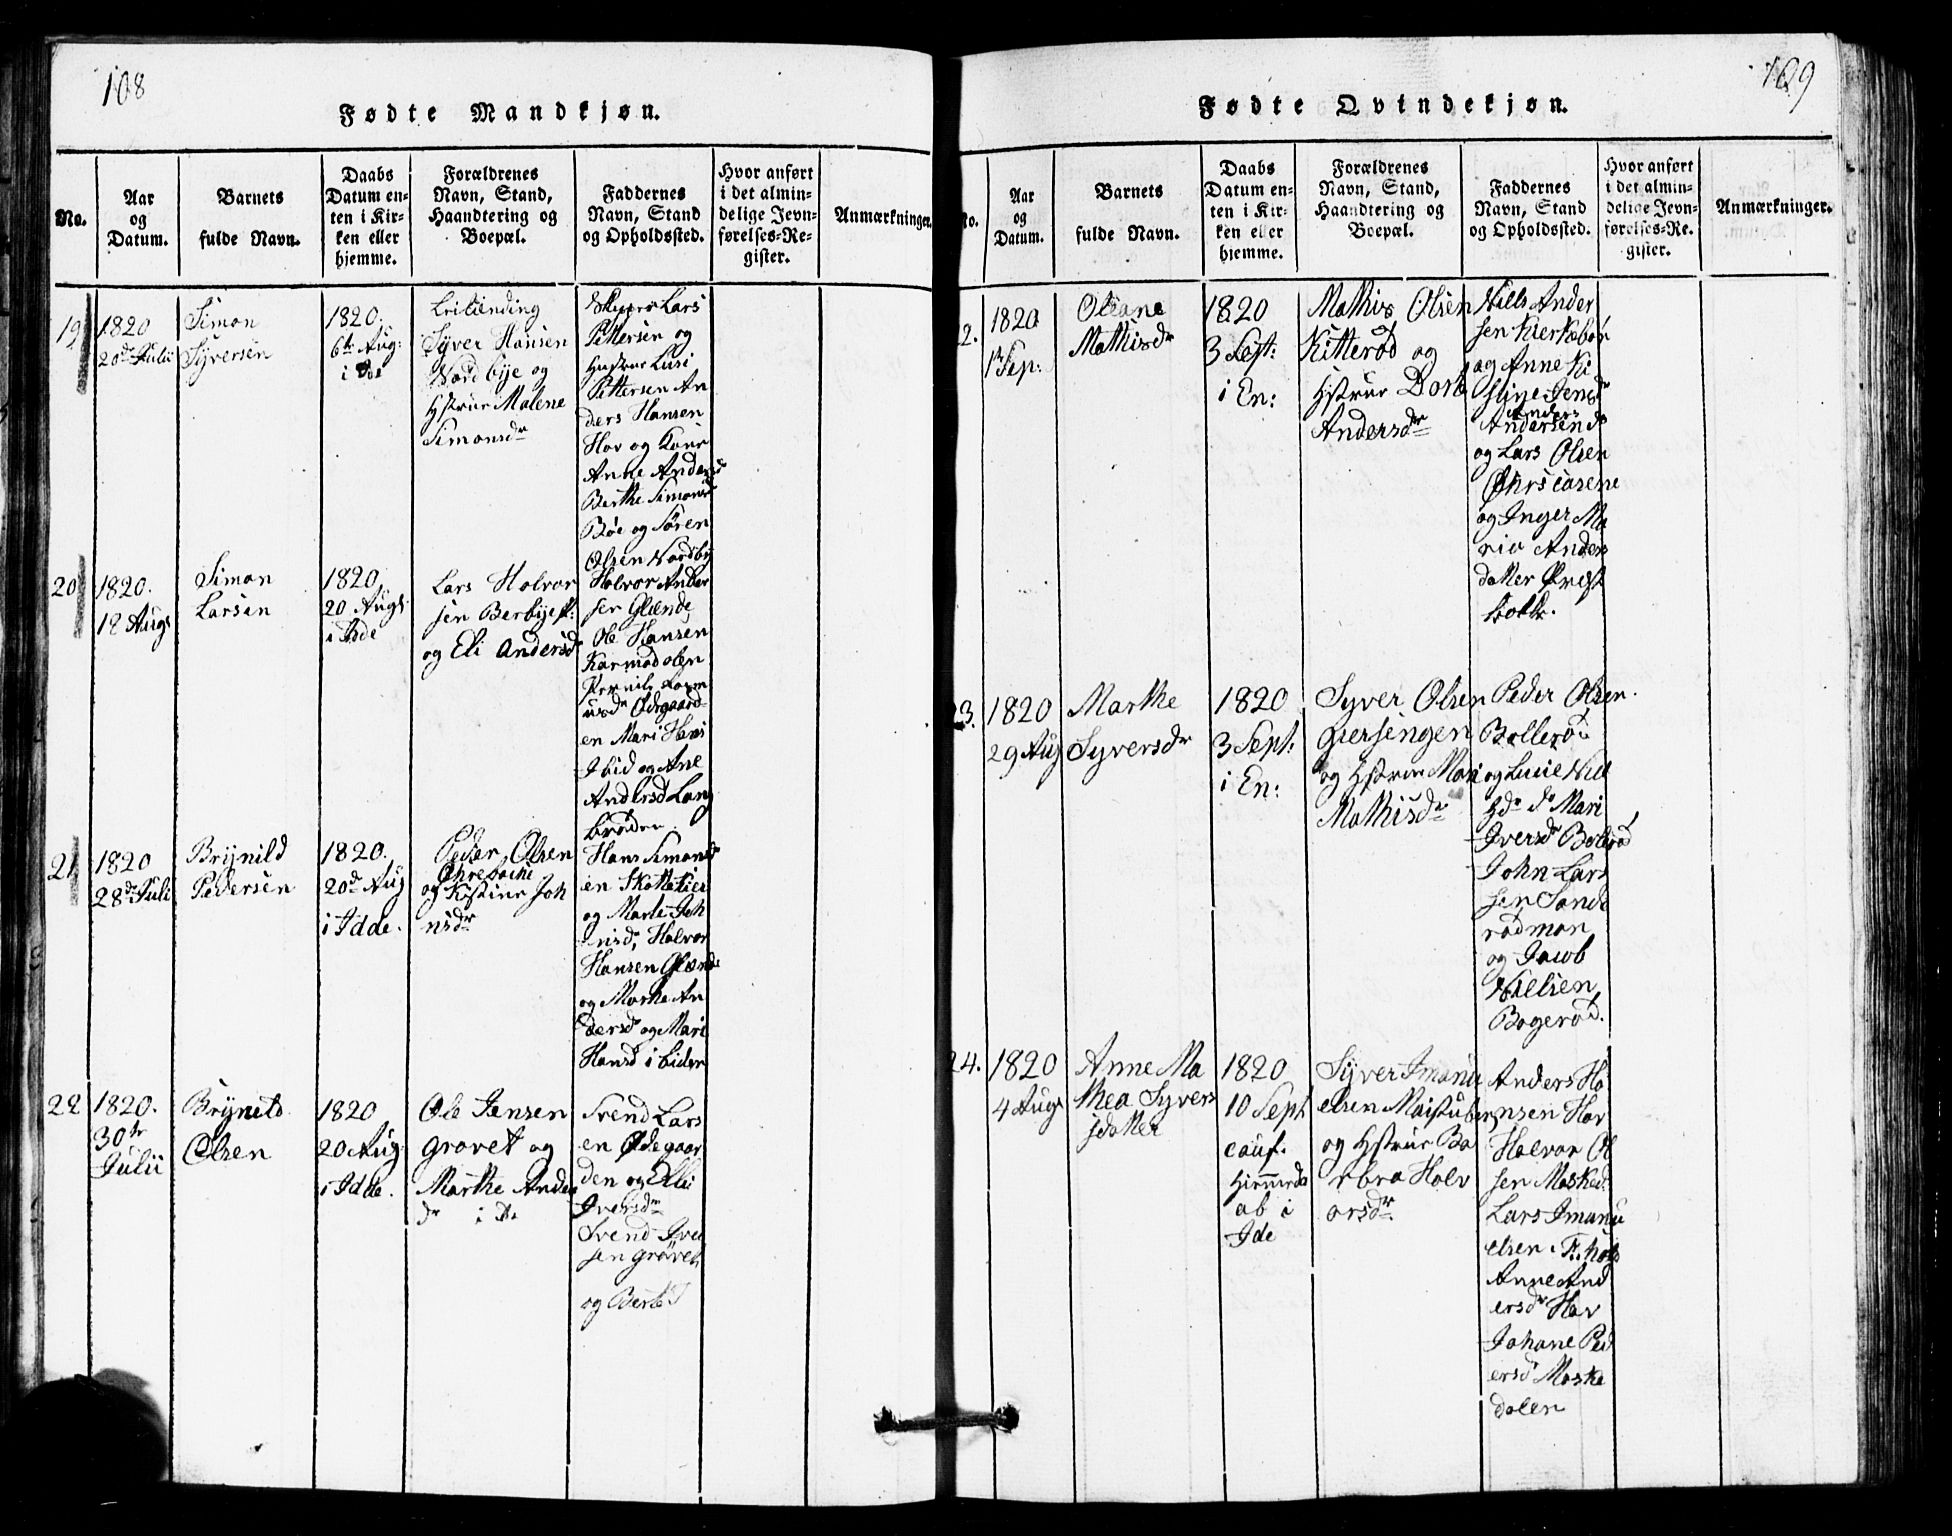 108
Fødte Mandkjøn.
No.
Aar
og
Datum.
Barnets
fulde Navn.
Daabs
Datum en-
ten i Kir-
ken eller
hjemme.
Forældrenes
Navn, Stand,
Haandtering og
Boepæl.
Faddernes
Navn, Stand
og Opholdssted.
Hvor anført
i det almin-
delige Jevn-
førelses-Re-
gister.
Anmærkninger.
19
1820
20de Julii
Simon
Syversen
1820.
6te Aug:
i
Leilænding
Syver Hansen
Nordbye og
Hstrue Malene
Simonsdr
Lars
Pettersen og
Hustrue
Pettersen An
ders Hansen
Hov og Kone
Anne Anders
Berthe Simonsd
Bøe og Sören
Olsen Nordby
20
1820.
18 Augs
Simon
Larsen
1820
20 Augs
i Ide
Lars Halvor
sen Berbye
og Eli Andersd
Halvor Ander
sen Glænde
Ole Hansen
Ødegaard
en Mari Hans
Ibid og Ane
Andersd Lang
bråden
21
1820
28de Juli
Brynild
Pedersen
1820.
20d Aug
i Idde.
Peder Olsen
og Kistine Joh
nsdr
Hans Simons
en Skottekier
og Marte Joh
nsd, Halvor
Hansen Glænde
og Marthe An
dersd og Mari
Hansd i Liden
22
1820.
30te
Julii
Bryneld
Olsen
1820
20 Aug
i Idde.
Ole Jensen
Grövet og
Marthe Anders
dr i
Svend Lars
en Ødegaar
den og Elli
Iversdr
Svend Iver
sen Grövet
og Berte
109
Fødte Qvindekjøn.
No.
Aar
og
Datum.
Barnets
fulde Navn.
Daabs
Datum en-
ten i Kir-
ken eller
hjemme.
Forældrenes
Navn, Stand,
Haandtering og
Boepæl.
Faddernes
Navn, Stand
og Opholdssted.
Hvor anført
i det almin-
delige Jevn-
førelses-Re-
gister.
Anmærkninger.
2.
1820
1te Sep:
Oleane
Mathisdr
1820
3 Sept:
i En:
Mathis Olsen
Kitteröd og
Hstrue Dort
Andersdr
Nills Ander
sen Kierkebøe
og Anne Ki
stine Jensd
Anders
Andersen do
og Lars Olsen
og Inger Ma
ria Anders
datter Præst
bakke.
23.
1820
29 Aug
Marthe
Syversdr
1820
3 Sept:
i En:
Syver Olsen
Giersengen
og Hstrue Mari
Mathisdr
Peder Olsen
Bolleröd
og Lucie Niel
do Mari
Iversd Boleröd
John Lars
sen Sande
rödmon
og Jacob
Nielsen
Bogeröd.
24.
1820
4 Augs
Anne Ma
thea Syvers
datter
1820
10 Sept
Hiemmeda
ab i
Ide
Syver Imanu
elsen
og Hstrue Ba
rbra Halv
orsdr
Anders Ha
nsen Hov
Halvor Ol
sen Masked:
Lars Imanu
elsen
Anne And
ersdr Hov
Johane Ped
ersd Maske
dalen